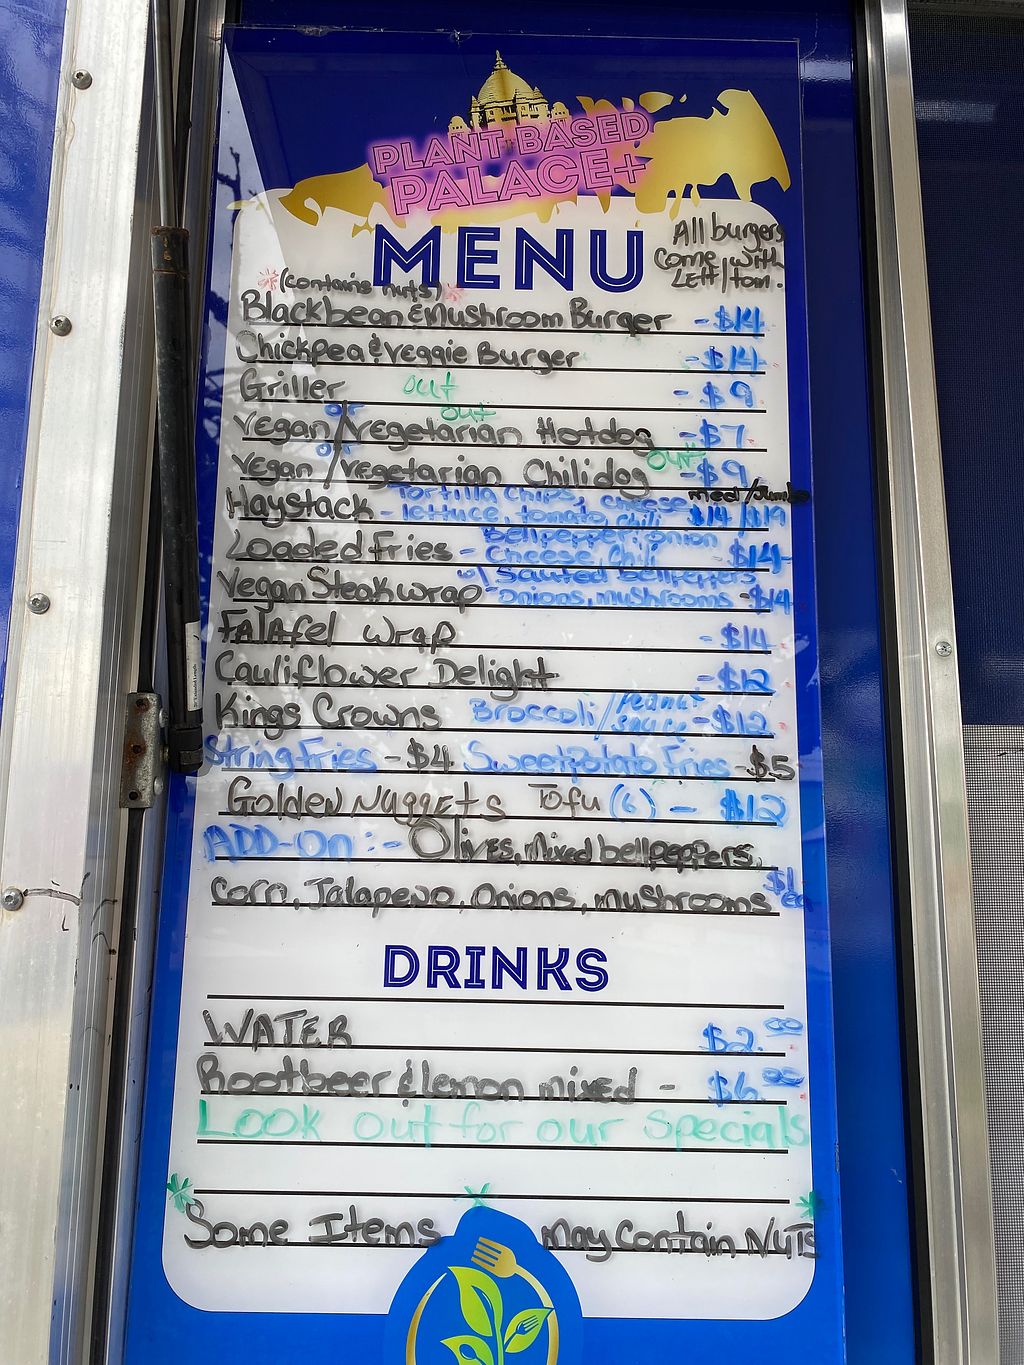 PLANT BASED
PALACE+
MENU
All burgers
come with
Lett/tom.
*(contains nuts)*
Blackbean & Mushroom Burger - $14
Chickpea & veggie Burger - $14
Griller out - $9
Vegan or/vegetarian Hotdog out - $7
Vegan or/vegetarian Chilidog out - $9
Haystack - Tortilla chips, cheese, med/Jumbo
lettuce, tomato, chili $14/$19
Loaded fries - Bellpepper, onion
Cheese, Chili - $14
Vegan Steak wrap w/ Sauted bellpeppers
- onions, mushrooms - $14
Falafel wrap - $14
Cauliflower Delight - $12
Kings Crowns Broccoli/peanut
sauce - $12
String Fries - $4 Sweet Potato Fries - $5
Golden Nuggets Tofu (6) - $12
ADD-On :- Olives, Mixed bellpeppers,
Corn, Jalapeno, Onions, mushrooms $1 ea
DRINKS
WATER $2.00
Rootbeer & lemon mixed - $6.00
Look out for our specials
* * *
Some Items may Contain NUTS